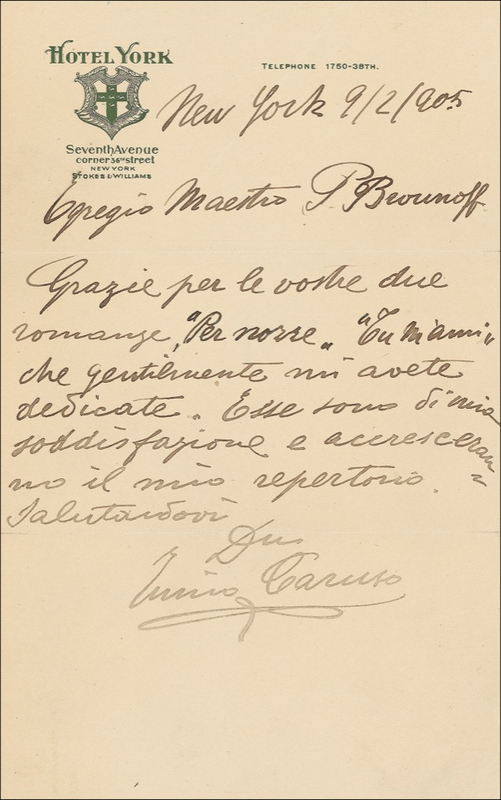 HOTEL YORK
TELEPHONE 1750-38TH.
New York 9/2/905
SEVENTH AVENUE
CORNER 36TH STREET
NEW YORK
STOKES & WILLIAMS
Egregio Maestro P. Brounoff
Grazie per le vostre due
romanze, "Per nozze" "Tu m'ami"
che gentilmente mi avete
dedicate. Esse sono di mia
soddisfazione e accresceran=
no il mio repertorio.
Salutandovi
Enrico Caruso